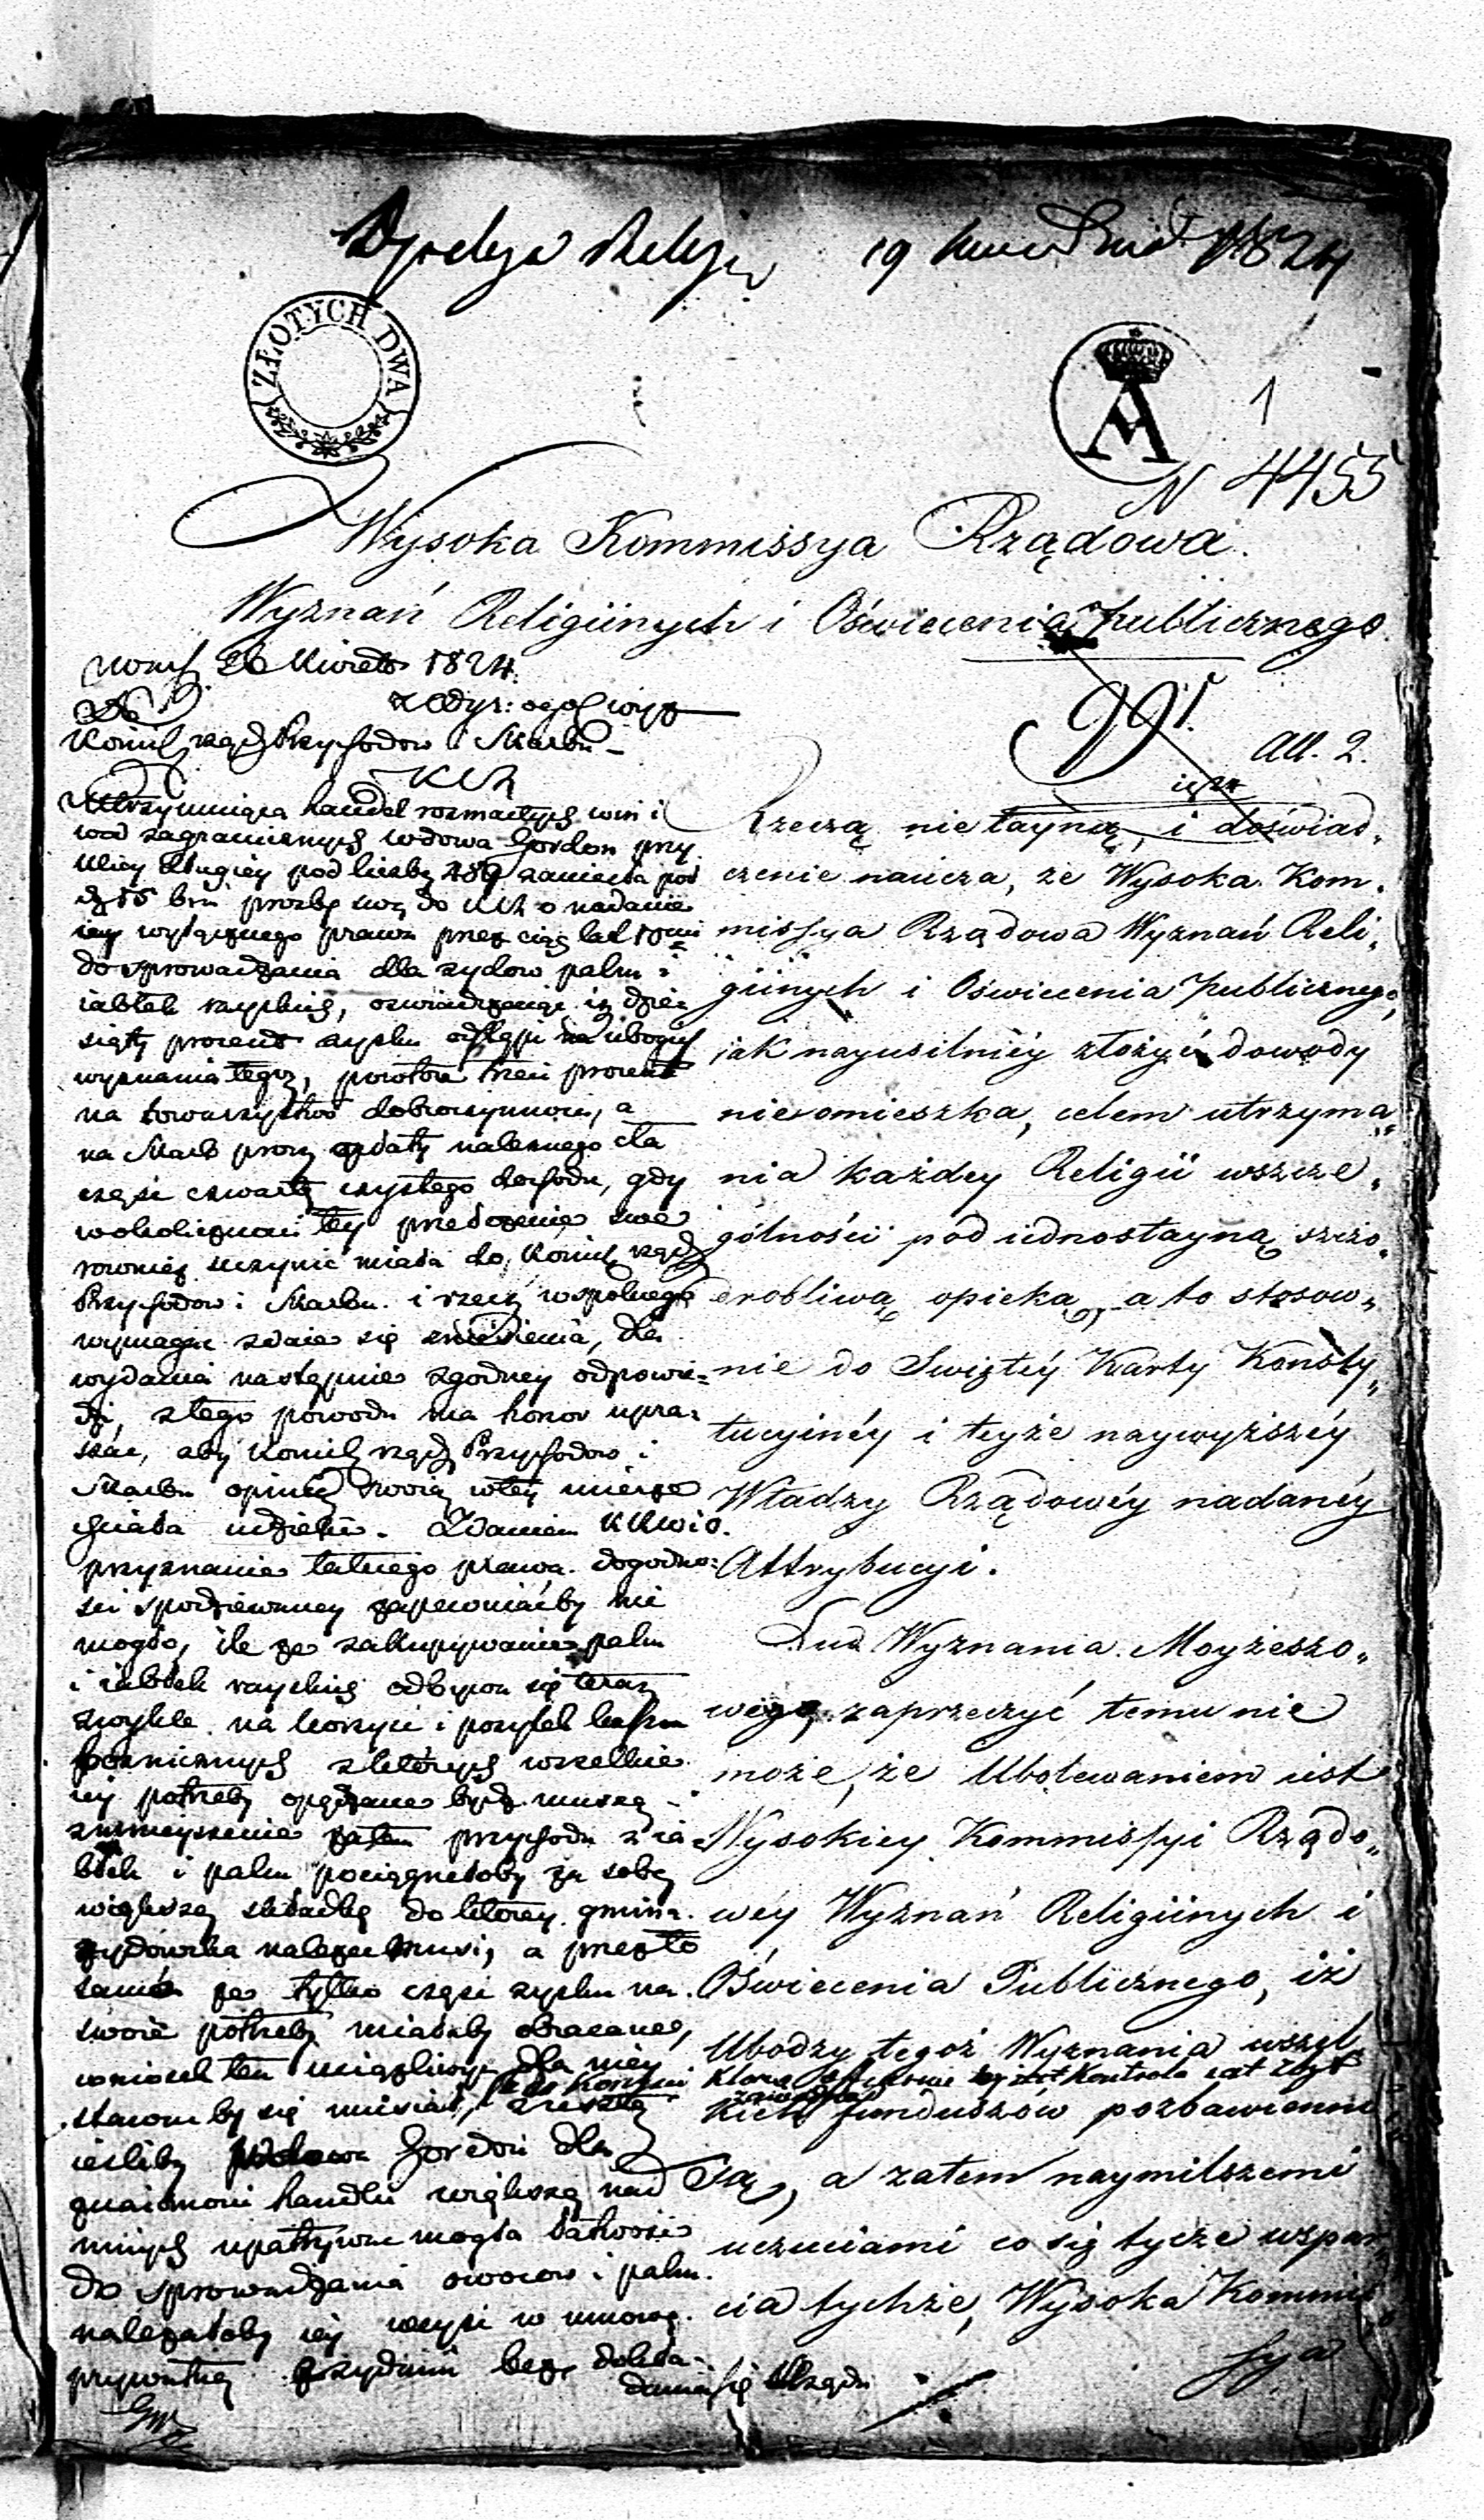 19 1824
ZŁOTYCH DWA
A
1
N 4455
Wysoka Kommissya Rządowa.
Wyznań Religiinych i Oświecenia publicznego
26 1824.
Do
Przychodow i Skarbu
Utrzymuiąca handel rozmaitych win i
wod zagranicznych wdowa Gordon przy
ulicy Długiey pod liczbą zaniosła pod
prozbę swą do o nadanie
iey wyłącznego prawa przez ciąg lat
do sprowadzania dla zydow palm i
iabłek rayskich, oswiadczaiąc iż dzie
siąty procent zysku odstąpi na ubogich
wyznania tegoż, powtore trzeci procent
na towarzystwo dobroczynnosci, a
na Skarb procz opłaty należnego cła
częsc czwartą czystego dochodu, gdy
w okolicznosci tey przełożenie swe
rownież uczynic miała do
Przychodow i Skarbu i rzecz wspolnego
wymagac zdaie się zniesienia, dla
wydania następnie zgodney odpowie=
dzi, z tego powodu ma honor upra=
szac, aby Przychodow i
Skarbu opinię swoią w tey mierze
chciała udzielic. Zdaniem
przyznanie takiego prawa dogodno=
sci spodziewaney zapewniacby nie
mogło, ile że zakupywanie palm
i iabłek rayskich odbywa się teraz
zwykle na korzysc i pożytek kass
boznicznych z ktorych wszelkie
iey potrzeby opędzane bydz muszą
zmnieyszenie zatem przychodu z ia=
błek i palm pociągnełoby za sobą
większą składkę do ktorey gmina
zydowska należec musi, a przeto
że tylko częsc zysku na
swoie potrzeby miałaby obracane,
wniosek ten uciążliwy dla niey
stacby się musiał,
iesliby wdowa Gordon dla
znaiomosci handlu większą nad
innych upatrywac mogła łatwosc
do sprowadzania owocow i palm
należałoby iey weysc w umowę
prywatną z zydami bez dokła=
dania się Rządu
991.
All. 2.
Rzeczą nietayną, i doświad,,
czenie naucza, że Wysoka Kom,,
missya Rządowa Wyznań Reli,,
giinych i Oświecenia publicznego,
jak nayusilniéy złożyć dowody
nieomieszka, celem utrzyma,,
nia każdey Religii wszcze,,
gólności pod iednostayną szczo,,
drobliwą opieką, a to stosow,,
nie do Swiętéy Karty Konsty,,
tucyinéy i teyże naywyższéy
Władzy Rządowéy nadanéy
Attrybucyi.
Lud Wyznania Moyżeszo,,
wego, zaprzeczyć temu nie
może, że Ubolewaniem iest
Wysokiey Kommissyi Rządo,,
wéy Wyznań Religiinych i
Oświecenia Publicznego, iż
Ubodzy tegoż Wyznania wszel,,
kich funduszów pozbawieni
Są, a zatem naymilszemi
uczuciami co się tycze wspar,,
cia tychże, Wysoka Kommis,,
sya